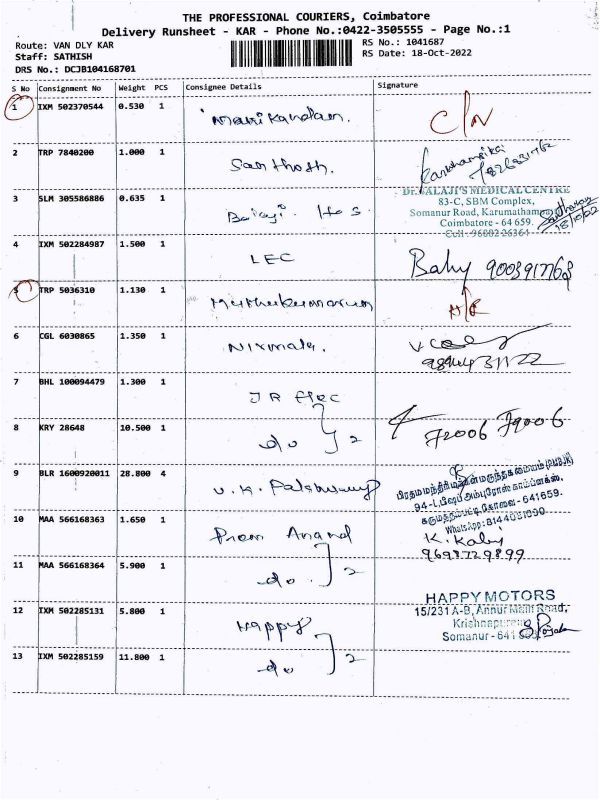 THE PROFESSIONAL COURIERS, Coimbatore
Delivery Runsheet - KAR - Phone No.:0422-3505555 - Page No.:1
Route: VAN DLY KAR
Staff: SATHISH
DRS No.: DCJB104168701
RS No.: 1041687
RS Date: 18-Oct-2022
S No Consignment No Weight PCS Consignee Details Signature
1 IXM 502370544 0.530 1 Manikandan. C/N
2 TRP 7840200 1.000 1 Santhosh.
3 SLM 305586886 0.635 1 Balaji. Hos.
Dr. BALAJI'S MEDICAL CENTRE
83-C, SBM Complex,
Somanur Road, Karumathampatti
Coimbatore - 64 659
Cell : 96002 26364
18/10/22
4 IXM 502284987 1.500 1 LEC Baby 9003917763
5 TRP 5036310 1.130 1 Muthukumarun
6 CGL 6030865 1.350 1 Nirmala.
7 BHL 100094479 1.300 1 JR Elec
8 KRY 28648 10.500 1 do 2 F2006 F9006
9 BLR 1600920011 28.800 4 V.K. Palaniswamy
94-L, பிஷப் அம்புரோஸ் காம்ப்ளக்ஸ்,
கருமத்தம்பட்டி கோவை - 641659.
WhatsApp: 8144051090
10 MAA 566168363 1.650 1 Prem Anand K. Kalai
9698729899
11 MAA 566168364 5.900 1 do. 2
12 IXM 502285131 5.800 1 Happy
HAPPY MOTORS
15/231 A-B, Annur Main Road,
Krishnapuram
Somanur - 641
13 IXM 502285159 11.800 1 do 2